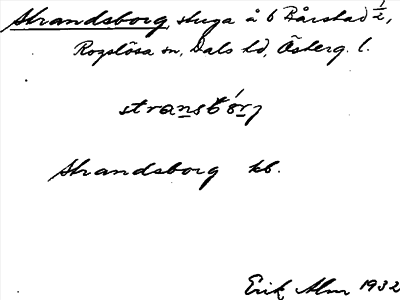 Strandsborg, stuga å 6 Bårstad 1/2,
Rogslösa sn, Dals hd, Österg. l.
Strandsborg kb.
Erik Alm 1932